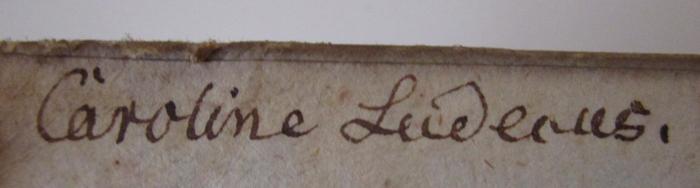 Caroline Ludecus.